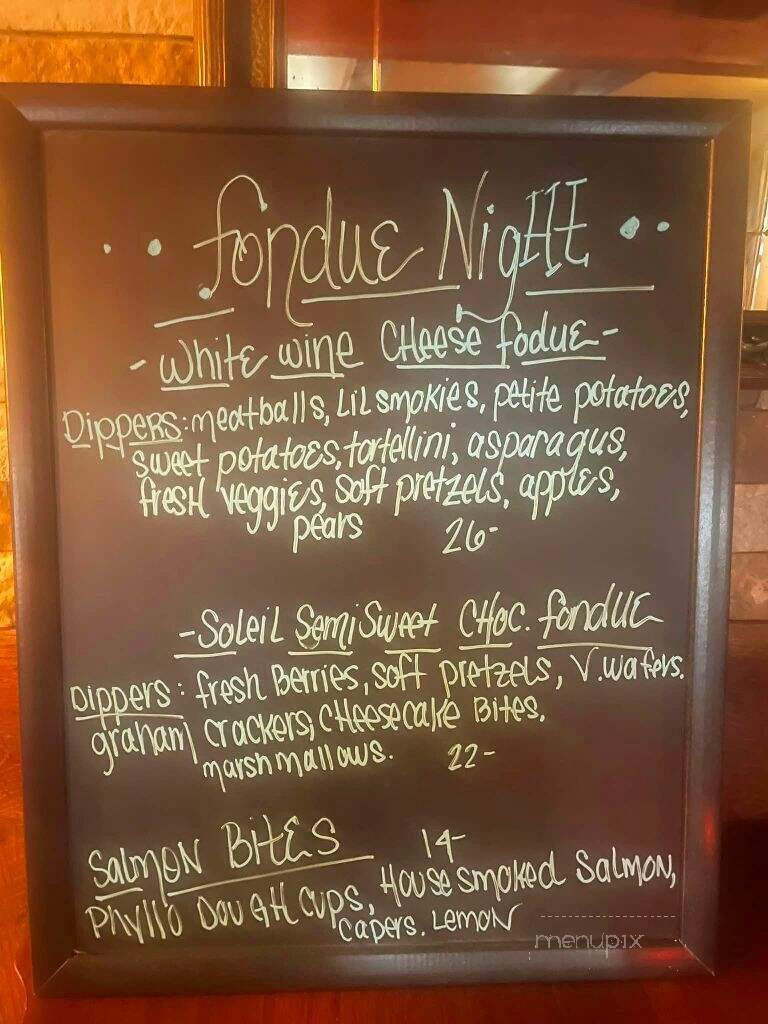 Fondue Night
- White Wine Cheese Fodue -
Dippers: meatballs, Lil smokies, petite potatoes,
sweet potatoes, tortellini, asparagus,
fresh veggies, soft pretzels, apples,
pears 26-
- Soleil SemiSweet Choc. Fondue
Dippers: fresh Berries, soft pretzels, V. wafers.
graham crackers, cheesecake Bites.
marshmallows. 22-
Salmon Bites 14-
Phyllo Dough cups, House smoked Salmon,
capers. Lemon
menupix